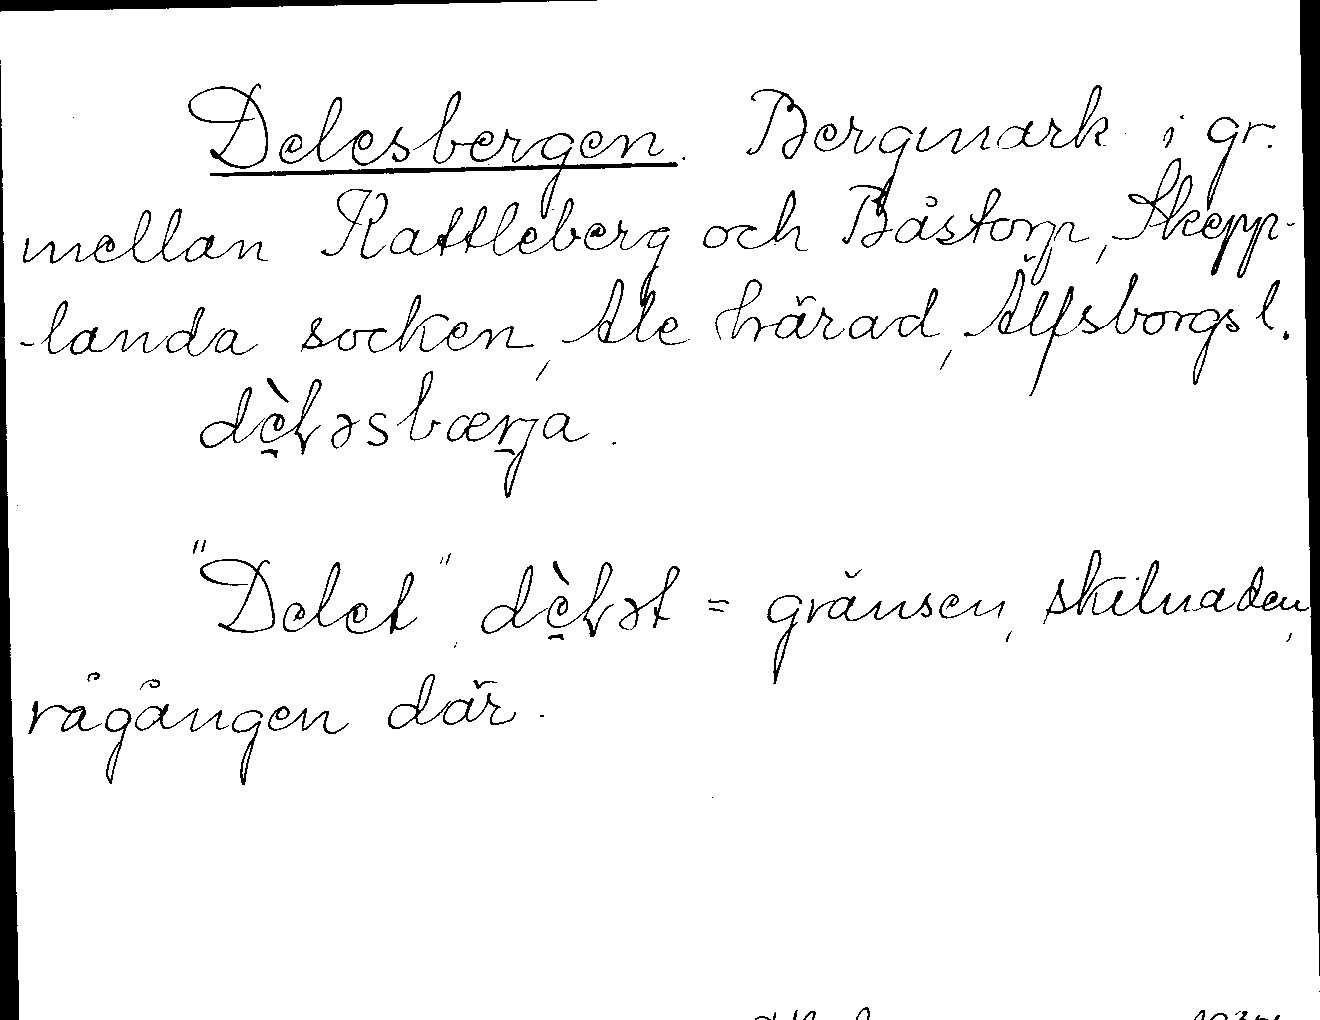 Delesbergen. Bergmark i gr.
mellan Kattleberg och Båstorp, Skepp-
-landa socken, Ale härad, Älfsborgs l.
dèɫəsbærja.
"Delet", dèɫət = gränsen, skilnaden,
rågången där.